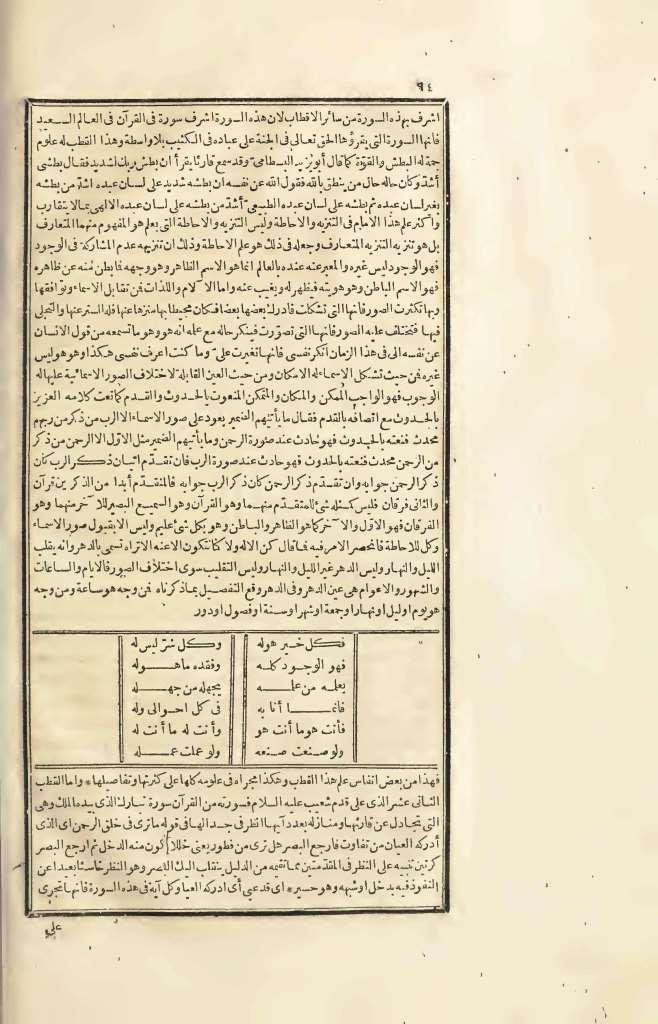 ٩٤
اشرف بهذه السورة من سائر الاقطاب لان هذه السورة اشرف سورة فى القرآن فى العالم السعيد
فانها السورة التى يقرؤها الحق تعالى فى الجنة على عباده فى الكثيب بلا واسطة وهذا القطب له علوم
جمة له البطش والقوة كما قال أبو يزيد البسطامى وقد سمع قارئا يقرأ ان بطش ربك لشديد فقال بطشى
أشد وكان حاله حال من ينطق بالله فقول الله عن نفسه ان بطشه شديد على لسان عبده اشد من بطشه
بغير لسان عبده ثم بطشه على لسان عبده الطبيعى أشد من بطشه على لسان عبده الالهى بما لا يتقارب
واكثر علم هذا الامام فى التنزيه والاحاطة وليس التنزيه والاحاطة التى يعلم هو المفهوم منهما المتعارف
بل هو تنزيه التنزيه المتعارف وجعله فى ذلك هو علم الاحاطة وذلك ان تنزيهه عدم المشاركة فى الوجود
فهو الوجود ليس غيره والمعبر عنه عنده بالعالم انما هو الاسم الظاهر وهو وجهه فما بطن منه عن ظاهره
فهو الاسم الباطن وهو هويته فيظهر له ويغيب عنه واما الآلام واللذات فمن تقابل الاسماء وتوافقها
وبها تكثرت الصور فانها التى تشكلت فادرك بعضها بعضا فكان محيطا بها منزها عنها فله الستر عنها والتجلى
فيها فتختلف عليه الصور فانها التى تصورت فينكر حاله مع علمه انه هو وهو ما تسمعه من قول الانسان
عن نفسه الى فى هذا الزمان انكر نفسى فانها تغيرت على وما كنت اعرف نفسى هكذا وهو هو ليس
غيره فمن حيث تشكل الاسماء له الامكان ومن حيث العين القابلة لاختلاف الصور الاسمائية عليها له
الوجوب فهو الواجب الممكن والمكان والمتمكن المنعوت بالحدوث والقدم كما نعت كلامه العزيز
بالحدوث مع اتصافه بالقدم فقال ما يأتيهم الضمير يعود على صور الاسماء الا الرب من ذكر من ربهم
محدث فنعته بالحدوث فهو حادث عند صورة الرحمن وما يأتيهم الضمير مثل الاول الا الرحمن من ذكر
من الرحمن محدث فنعته بالحدوث فهو حادث عند صورة الرب فان تقدم اتيان ذكر الرب كان
ذكر الرحمن جوابه وان تقدم ذكر الرحمن كان ذكر الرب جوابه فالمتقدم أبدا من الذكرين قرآن
والثانى فرقان فليس كمثله شئ للمتقدم منهما وهو القرآن وهو السميع البصير للآخر منهما وهو
الفرقان فهو الاول والآخر كما هو الظاهر والباطن وهو بكل شئ عليم وليس الا بقبول صور الاسماء
وكل للاحاطة فانحصر الامر فيه فما قال كن الا له ولا كان التكون الا عنه الا تراه تسمى بالدهر وانه يقلب
الليل والنهار وليس الدهر غير الليل والنهار وليس التقليب سوى اختلاف الصور فالايام والساعات
والشهور والاعوام هى عين الدهر وفى الدهر وقع التفصيل بما ذكرناه فمن وجه هو ساعة ومن وجه
هو يوم او ليل او نهار او جمعة او شهر او سنة او فصول او دور
فكل خير هو له وكل شر ليس له
فهو الوجود كله وفقده ما هو له
يعلمه من علمه يجهله من جهله
فانما أنا به فى كل احوالى وله
فأنت هو ما أنت هو وأنت له ما أنت له
ولو صنعت صنعه ولو عملت عمله
فهذا من بعض انفاس علم هذا القطب وهكذا مجراه فى علومه كلها على كثرتها وتفاصيلها * واما القطب
الثانى عشر الذى على قدم شعيب عليه السلام فسورته من القرآن سورة تبارك الذى بيده الملك وهى
التى تجادل عن قارئها ومنازله بعدد آيها انظر فى جدالها فى قوله ما ترى فى خلق الرحمن اى الذى
أدركه العيان من تفاوت فارجع البصر هل ترى من فطور يعنى خللا يكون منه الدخل ثم ارجع البصر
كرتين تنبيه على النظر فى المقدمتين مما تقيمه من الدليل ينقلب اليك البصر وهو النظر خاسئا بعيدا عن
النفوذ فيه بدخل او شبهه وهو حسير * اى قد عيى أى ادركه العياء وكل آية فى هذه السورة فانها تجرى
على